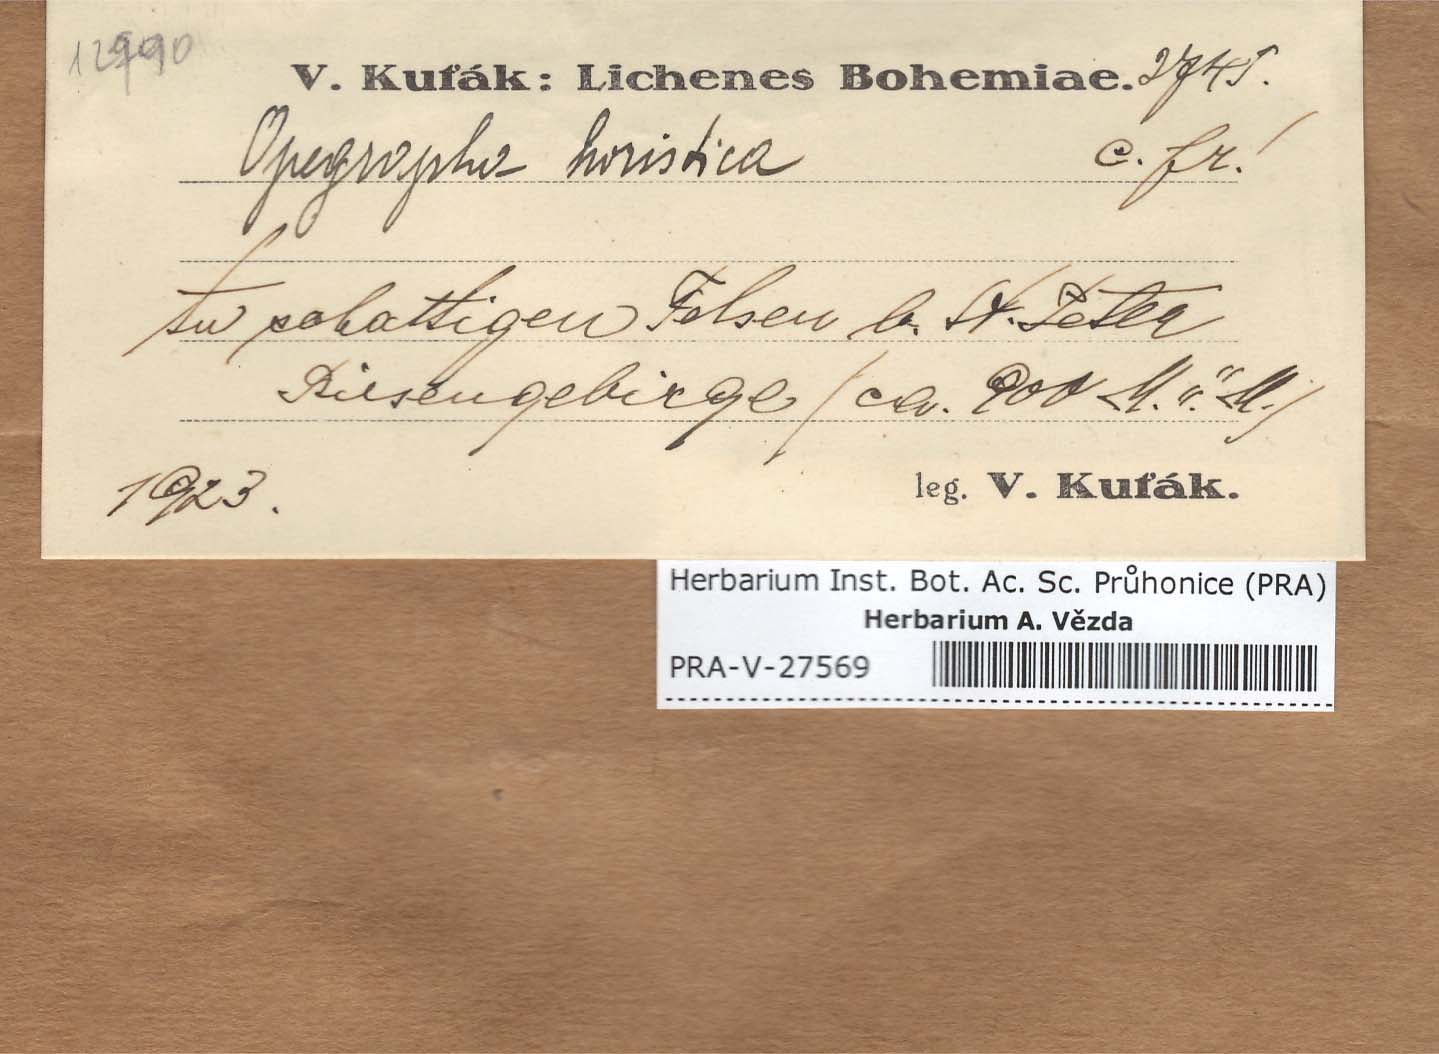 12990
V. Kuťák: Lichenes Bohemiae. 2745.
Opegrapha horistica c. fr.!
An schattigen Felsen b. St. Peter
Riesengebirge /ca. 900 M. ü. M./
1923.
leg. V. Kuťák.
Herbarium Inst. Bot. Ac. Sc. Průhonice (PRA)
Herbarium A. Vězda
PRA-V-27569